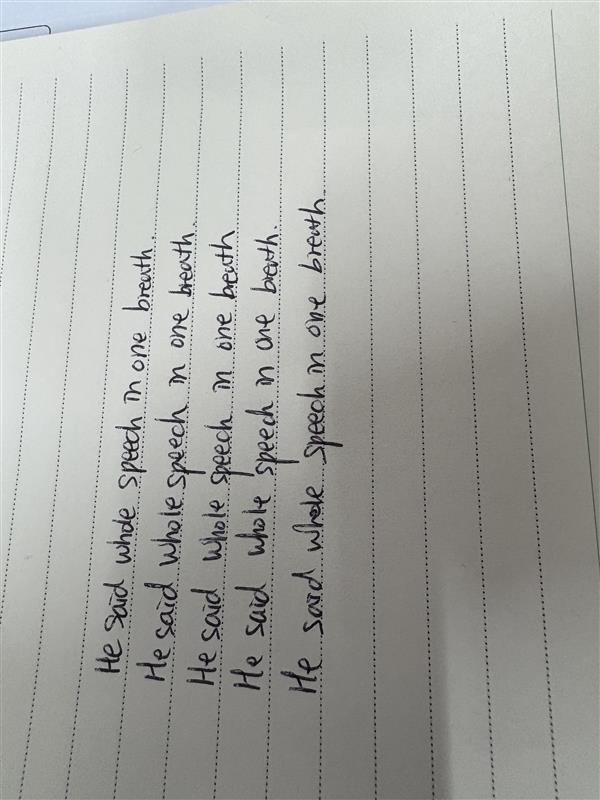 He said whole speech in one breath.
He said whole speech in one breath.
He said whole speech in one breath
He said whole speech in one breath.
He said whole speech in one breath.